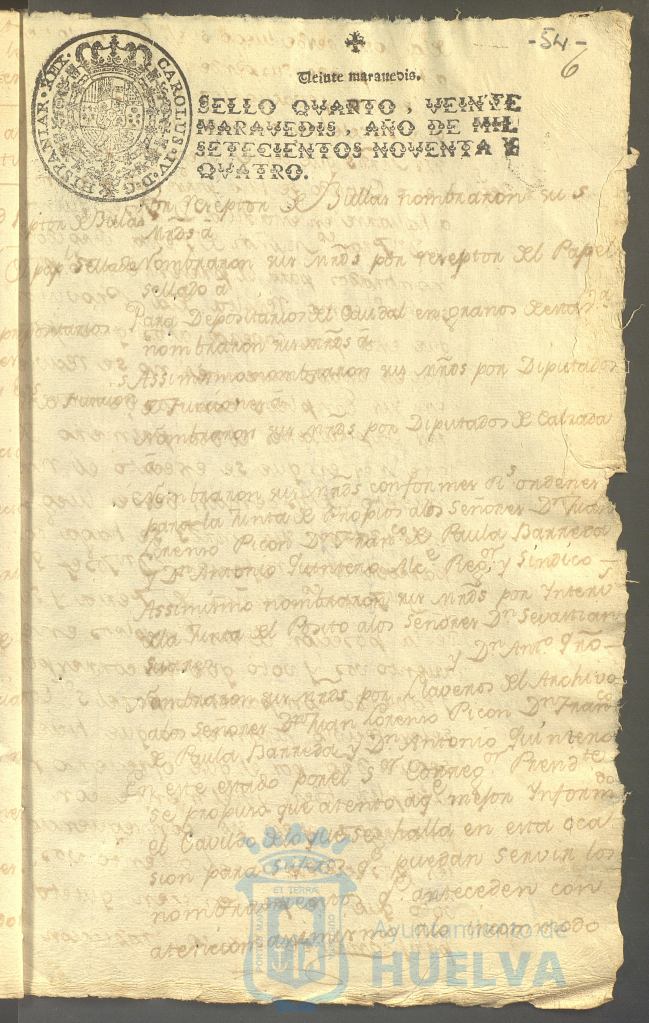 -54-
6
CAROLUS·IV·D·G·HISPANIAR·REX·
Veinte maravedis.
SELLO QVARTO, VEINTE
MARAVEDIS, AÑO DE MIL
SETECIENTOS NOVENTA Y
QVATRO.
Por Receptor de Bullas nombraron sus
mr̃ds á
Nombraron sus mr̃ds por receptor del Papel
sellado á
Para Depositarios del Caudal en granos
nombraron sus mr̃ds á
Assimismo nombraron sus mr̃ds por Diputados
de Funciones á
Nombraron sus mr̃ds por Diputados de Calzada
á
Nombraron sus mr̃ds conformes Rs ordenes
para la Junta de Propios a los Señores Dn Juan
Lorenzo Picon Dn Franco de Paula Barreda
y Dn Antonio Quintero Alce Regor y Sindico
Assimismo nombraron sus mr̃ds por
de la Junta del Posito a los Señores Dn Sevastian
Suarez y Dn Anto
Nombraron sus mr̃ds por Llaveros del Archivo
a los Señores Dn Juan Lorenzo Picon Dn Franco
de Paula Barreda y Dn Antonio Quintero
En este estado por el Sor Corregor Prendte
se propuso que atento a qe mejor Informdo
el Cavildo de lo que se halla en esta oca
sion para qe puedan servir los
nombramientos qe anteceden con
atencion asimismo
ET TERRÆ
Ayuntamiento de
HUELVA